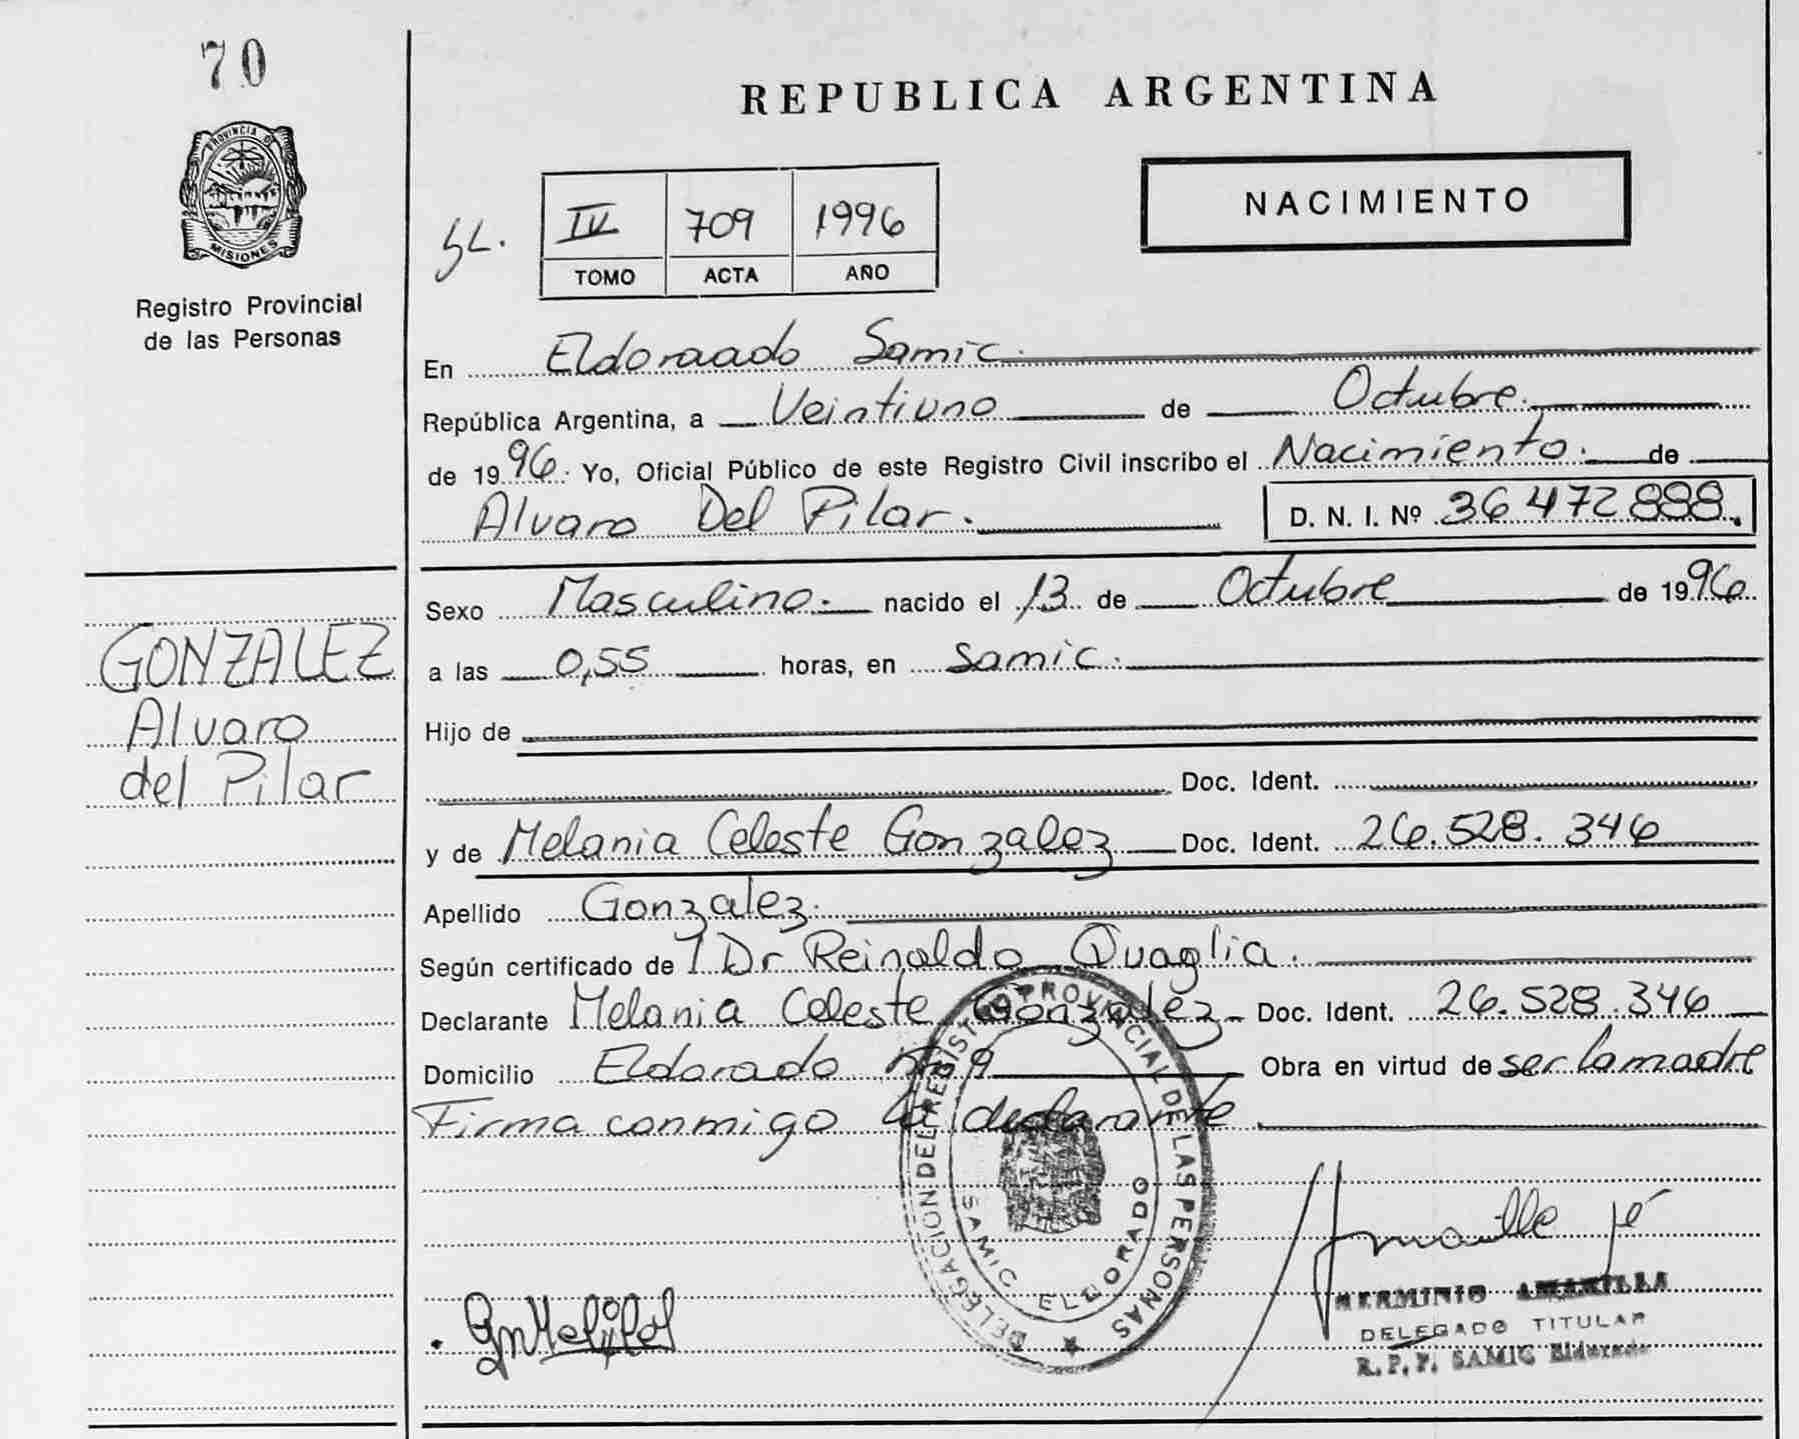 70
PROVINCIA DE
MISIONES
Registro Provincial
de las Personas
REPUBLICA ARGENTINA
NACIMIENTO
SL. IV 709 1996
TOMO ACTA AÑO
En Eldoraado Samic.
República Argentina, a Veintiuno de Octubre.
de 1996. Yo, Oficial Público de este Registro Civil inscribo el Nacimiento. de
Alvaro Del Pilar. D. N. I. Nº 36 472 888.
Sexo Masculino. nacido el 13 de Octubre de 1996
a las 0,55 horas, en Samic.
Hijo de
Doc. Ident.
y de Melania Celeste Gonzalez Doc. Ident. 26.528.346
Apellido Gonzalez.
Según certificado de 1 Dr Reinaldo Quaglia.
Declarante Melania Celeste Gonzalez Doc. Ident. 26.528.346
Domicilio Eldorado 9 Obra en virtud de ser la madre
Firma conmigo la declarante
GONZALEZ
Alvaro
del Pilar
DELEGACION DEL REGISTRO PROVINCIAL DE LAS PERSONAS
SAMIC ELDORADO
HERMINIO AMARILLA
DELEGADO TITULAR
R. P. P. SAMIC Eldorado